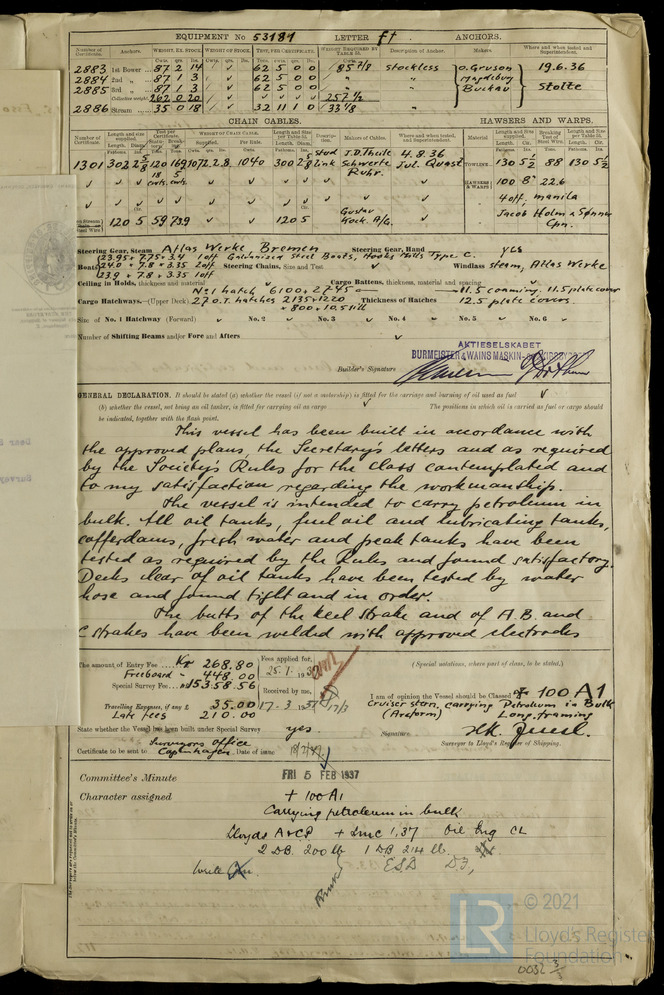 EQUIPMENT No 53181 LETTER f† ANCHORS.
Number of Certificate. Anchors. WEIGHT, EX. STOCK. WEIGHT OF STOCK. TEST, PER CERTIFICATE. WEIGHT REQUIRED BY TABLE 53. Description of Anchor. Makers. Where and when tested and Superintendent.
2883 1st Bower 87 2 14 ✓ 62 5 0 0 85 7/8 stockless O. Gruson 19.6.36
2884 2nd „ 87 1 3 ✓ 62 5 0 0 " Magdeburg
2885 3rd „ 87 1 3 ✓ 62 5 0 0 " Buckau Stolte
Collective weight 262 0 20 257 1/2
2886 Stream 35 0 18 ✓ 32 11 1 0 33 1/8 "
CHAIN CABLES. HAWSERS AND WARPS.
1301 302 2 5/8 120 169 1072.2.8 1040 300 2 5/8 Stud link J.D. Theile Schwerte Ruhr. 4.8.36 Jul. Quast TOWLINE 130 5 1/2 88 130 5 1/2
HAWSERS & WARPS 100 8" 22.6
4 off, manila
120 5 59 73.9 ✓ ✓ 120 5 Gustav Kock. A/G. ✓ Jacob Holm & Sønner Cpn.
Steering Gear, Steam Atlas Werke, Bremen Steering Gear, Hand yes
23.95 + 7.75 + 3.4 1 off Galvanized Steel Boats, Type C.
Boats 24.0 + 7.8 + 3.35 2 off Steering Chains, Size and Test ✓ Windlass Steam, Atlas Werke
23.9 + 7.8 + 3.35 1 off
Ceiling in Holds, thickness and material Cargo Battens, thickness, material and spacing ✓
No 1 hatch 6100 + 2745 11.5 coaming, 11.5 plate cover
Cargo Hatchways.—(Upper Deck) 27 O.T. hatches 2135 + 1220 Thickness of Hatches 12.5 plate covers.
+ 800 + 10.5
Size of No. 1 Hatchway (Forward) ✓ No. 2 ✓ No. 3 ✓ No. 4 ✓ No. 5 ✓ No. 6 ✓
Number of Shifting Beams and/or Fore and Afters ✓
AKTIESELSKABET
BURMEISTER & WAINS MASKIN- OG SKIBSBYGGERI
Builder's Signature
GENERAL DECLARATION. It should be stated (a) whether the vessel (if not a motorship) is fitted for the carriage and burning of oil used as fuel ✓
(b) whether the vessel, not being an oil tanker, is fitted for carrying oil as cargo ✓ The positions in which oil is carried as fuel or cargo should
be indicated, together with the flash point.
This vessel has been built in accordance with
the approved plans, the Secretary's letters and as required
by the Society's Rules for the class contemplated and
to my satisfaction regarding the workmanship.
The vessel is intended to carry petroleum in
bulk. All oil tanks, fuel oil and lubricating tanks,
cofferdams, fresh water and peak tanks have been
tested as required by the Rules and found satisfactory.
Decks clear of oil tanks have been tested by water
hose and found tight and in order.
The butts of the keel strake and of A.B. and
C strakes have been welded with approved electrodes
The amount of Entry Fee ... Kr 268.80 Fees applied for, (Special notations, where part of class, to be stated.)
Freeboard - 448.00 25.1.1937
Special Survey Fee 15358.56 Received by me, I am of opinion the Vessel should be Classed 100 A1
Travelling Expenses, if any 35.00 17-3.1937 Cruiser stern, carrying Petroleum in Bulk
Late Fees 210.00 (Arcform) Long. framing
State whether the Vessel has been built under Special Survey yes. Signature
Surveyors Office Surveyor to Lloyd's Register of Shipping.
Certificate to be sent to Copenhagen. Date of issue
Committee's Minute FRI 5 FEB 1937
Character assigned + 100 A1
Carrying petroleum in bulk
Lloyds A & CP + LMC 1,37 Oil Eng CL
2 DB. 200 lb 1 DB 214 lb.
Write ESD DF,
© 2021
LR Lloyd's Register
Foundation
0032 3/3